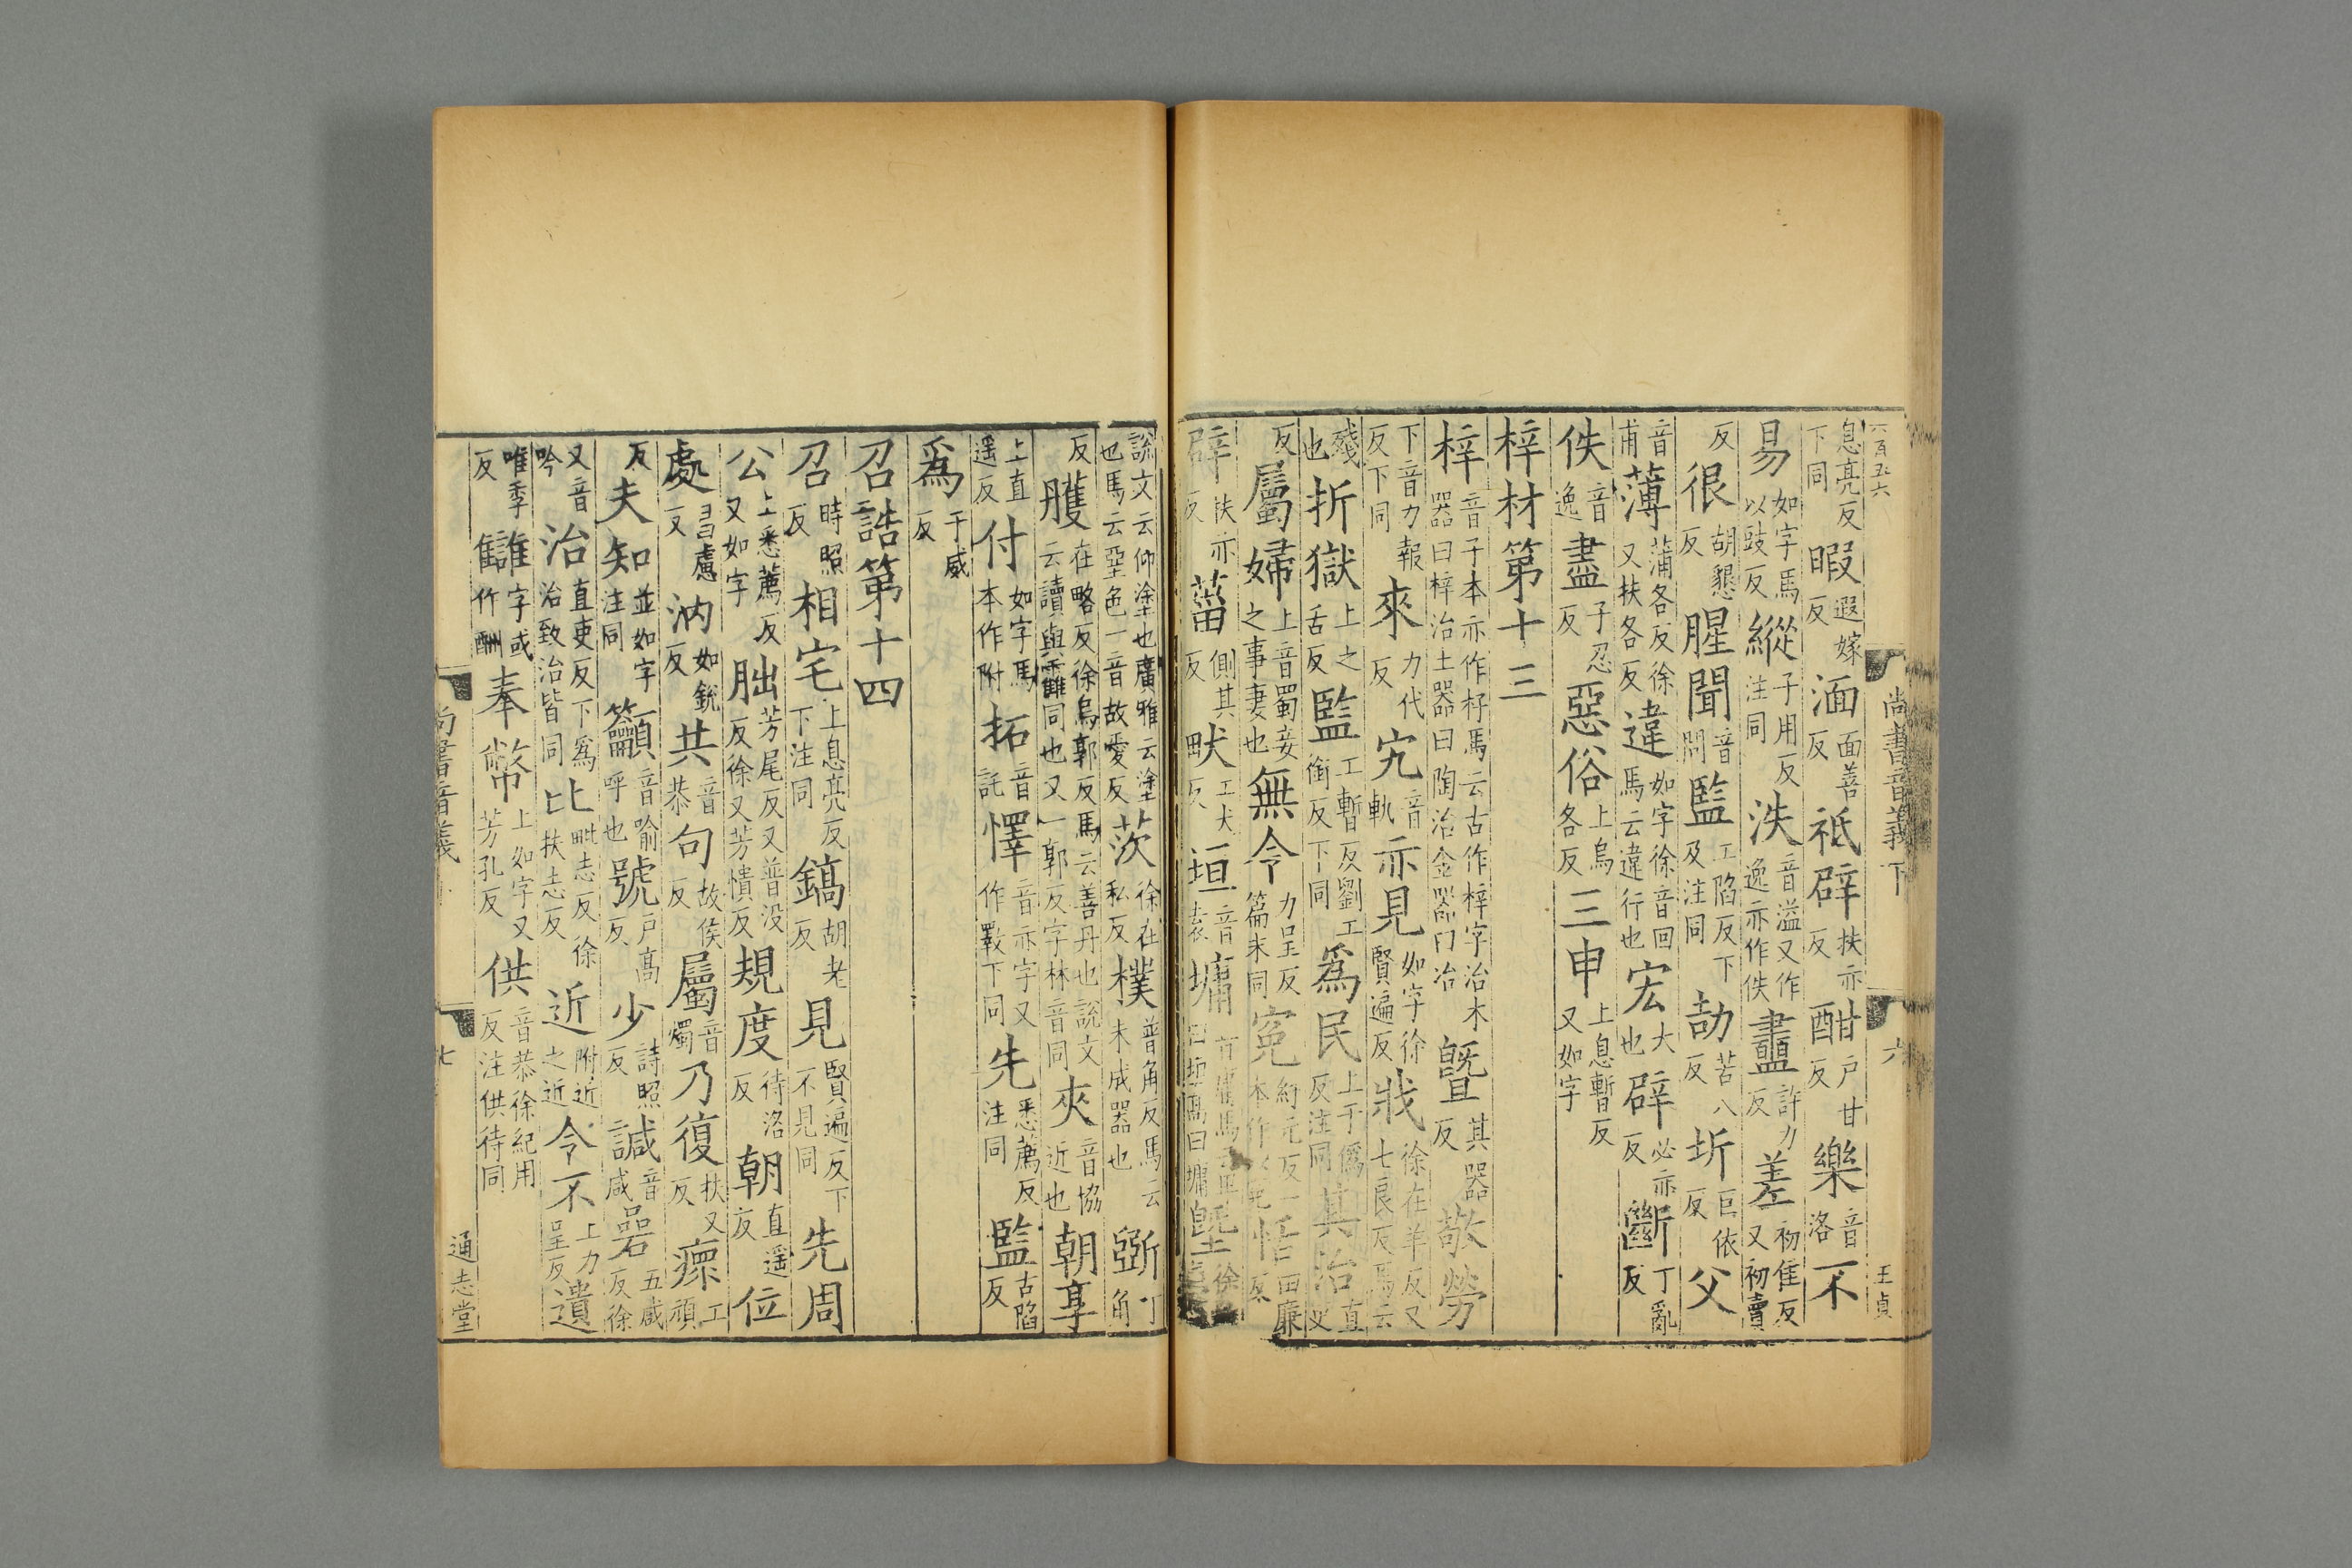 六百五十六
尚書音義下 六
王貞
息亮反下同暇遐嫁反湎面善反祗辟扶亦反酣戶甘反樂音洛不
易如字馬以豉反縱子用反注同泆音溢又作逸亦作佚衋許力反差初隹反又初賣
反很胡懇反腥聞音問監工陷反下及注同劼苦八反圻巨依反父
音甫薄蒲各反徐又扶各反違如字徐音回馬云違行也宏大也辟必亦反斷丁亂反
佚音逸盡子忍反惡俗上烏各反三申上息暫反又如字
梓材第十三
梓音子本亦作杍馬云古作梓字治木器曰梓治土器曰陶治金器曰冶曁其器反敬勞
下音力報反下同來力代反宄音軌亦見如字徐賢遍反戕徐在羊反又七良反馬云
殘也折獄上之舌反監工暫反劉工銜反下同爲民上于僞反注同其治直吏
反屬婦上音蜀妾之事妻也無令力呈反篇末同寃紆元反一本作以恬田廉反
辟扶亦反菑側其反畎工犬反垣音袁墉音庸馬云卑曰垣高曰墉塈徐
說文云仰塗也廣雅云塗也馬云堊色一音故愛反茨徐在私反樸普角反馬云未成器也斲丁角
反雘在略反徐烏郭反馬云善丹也說文云讀與靃同也又一郭反字林音同夾音協近也朝享
上直遥反付如字馬本作附拓音託懌音亦字又作斁下同先悉薦反注同監古陷反
爲于威反
召誥第十四
召時照反相宅上息亮反下注同鎬胡老反見賢遍反下不見同先周
公上悉薦反又如字朏芳尾反又普沒反徐又芳憒反規度待洛反朝直遥反位
處昌慮反汭如銳反共音恭句故侯反屬音燭乃復扶又反瘝工頑
反夫知並如字注同籲音喻呼也號戶高反少詩照反諴音咸嵒五咸反徐
又音吟治直吏反下爲治致治皆同比毗志反徐扶志反近附近之近令不上力呈反遺
唯季反讎字或作酬奉幣上如字又芳孔反供音恭徐紀用反注供待同
尚書音義下 七
通志堂